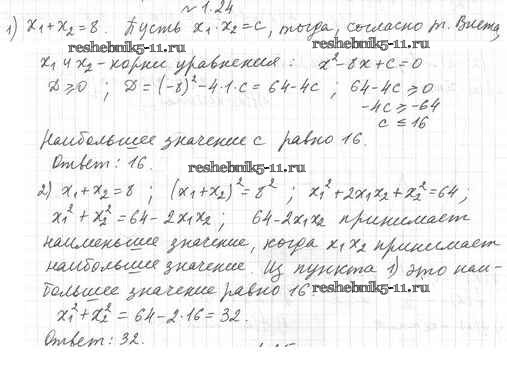 № 1.24
1) x₁+x₂=8. Пусть x₁·x₂=c, тогда, согласно т. Виета,
reshebnik5-11.ru reshebnik5-11.ru
x₁ и x₂ - корни уравнения: x²-8x+c=0
D≥0 ; D=(-8)²-4·1·c=64-4c ; 64-4c≥0
-4c≥-64
c≤16
Наибольшее значение c равно 16.
Ответ: 16.
reshebnik5-11.ru
2) x₁+x₂=8 ; (x₁+x₂)²=8² ; x₁²+2x₁x₂+x₂²=64;
x₁²+x₂²=64-2x₁x₂ ; 64-2x₁x₂ принимает
наименьшее значение, когда x₁x₂ принимает
наибольшее значение. Из пункта 1) это наи-
большее значение равно 16.
reshebnik5-11.ru reshebnik5-11.ru
x₁²+x₂²=64-2·16=32.
Ответ: 32.